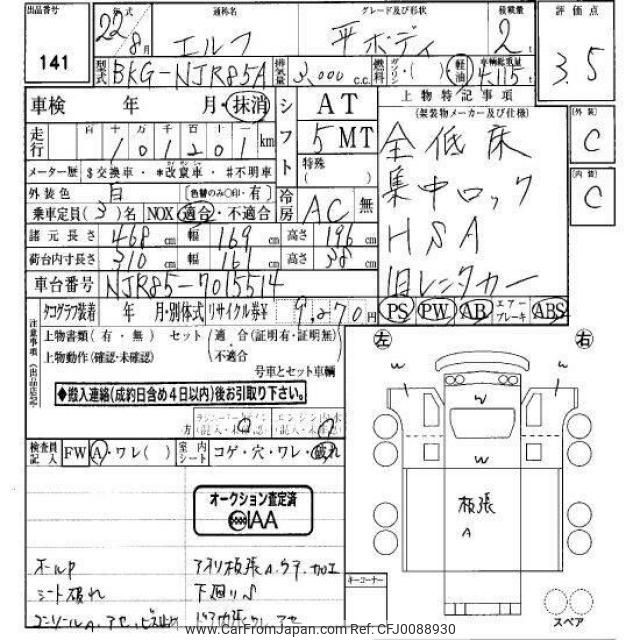 出品番号 141
年式 22年 8月
通称名 エルフ
グレード及び形状 平ボディ
積載量 2 t
評価点 3.5
型式 BKG-NJR85A
排気量 3,000 c.c.
燃料 ガソリン・( ) 軽油
車輌総重量 4,115 t
車検 年 月・抹消
シフト AT 5 MT
特殊 ( )
上物特記事項
(架装物メーカー及び仕様)
全低床
集中ロック
HSA
旧レンタカー
外装 C
内装 C
走行 百 十 万 千 百 十 一
101201 km
メーター歴 $交換車・*改ざん車・#不明車
外装色 白 〔色替のみ○印・有〕
冷房 AC 無
乗車定員 (3) 名 NOX 適合・不適合
諸元長さ 468 cm 幅 169 cm 高さ 196 cm
荷台内寸長さ 310 cm 幅 161 cm 高さ 38 cm
車台番号 NJR85-7015514
PS PW AB エアーブレーキ ABS
タコグラフ装着 年 月・別体式 リサイクル券¥ 9,270円
注意事項(出品店記記)
上物書類(有・無) セット(適合(証明有・証明無)・不適合
上物動作(確認・未確認)
号車とセット車輌
◆搬入連絡(成約日含め4日以内)後お引取り下さい。
左 右
w w w w
検査員記入 FW A・ワレ( ) 室内シート コゲ・穴・ワレ・破れ
オークション査定済
IAA
板張
A
シート破れ
下廻りS
キーコーナー
スペア
CarFromJapan.com - Stock ID: CFJ0088930